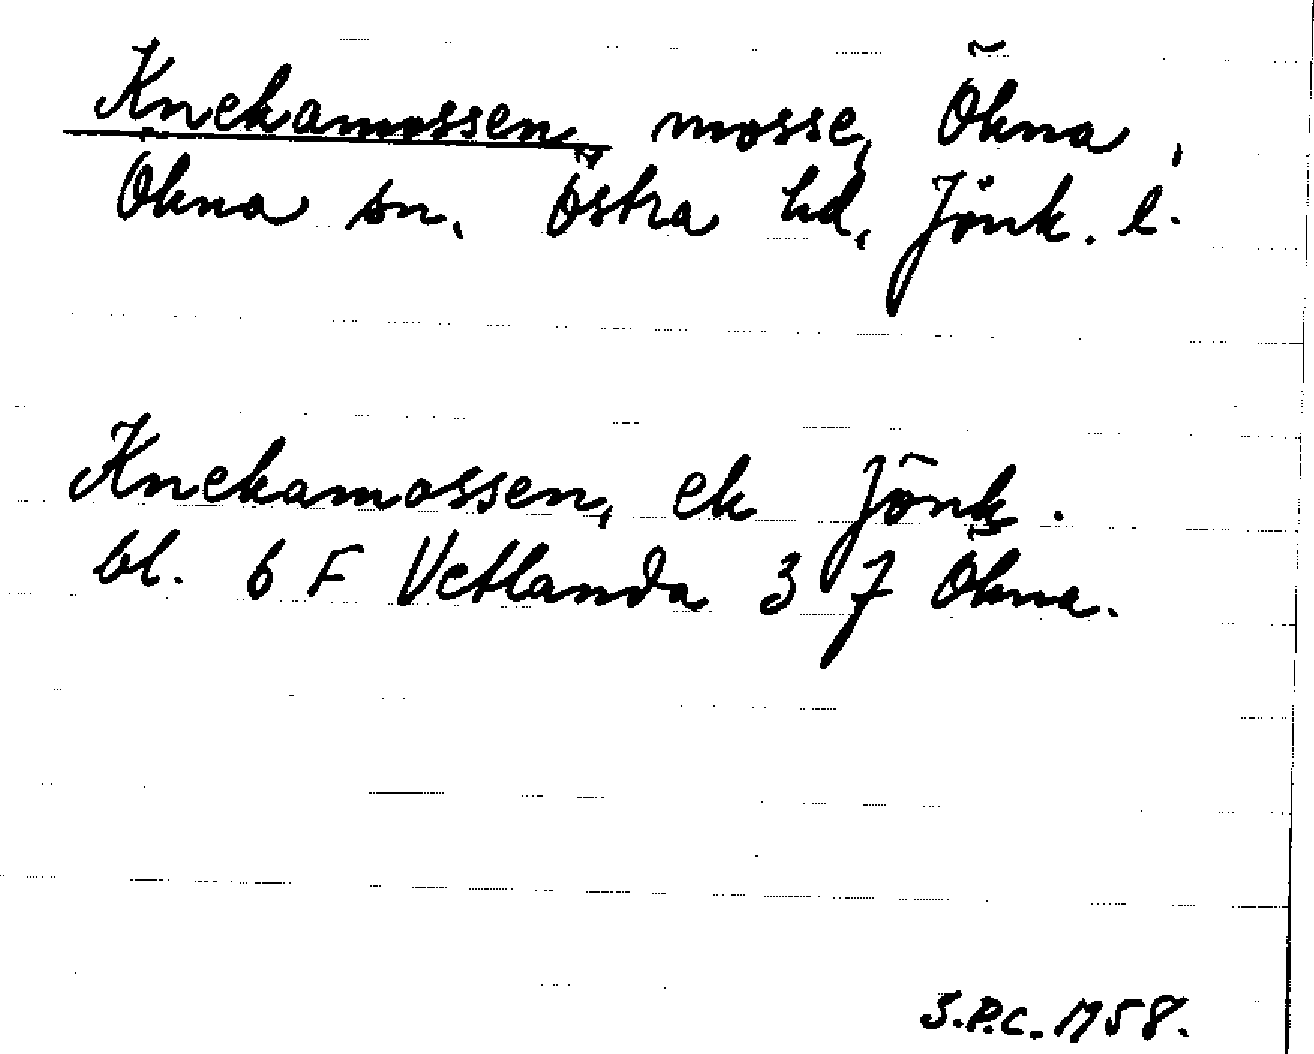 Knekamossen, mosse, Ökna,
Ökna sn, Östra hd, Jönk. l.
Knekamossen, ek Jönk.
bl. 6 F Vetlanda 3 7 Ökna.
S.P.C. 1958.